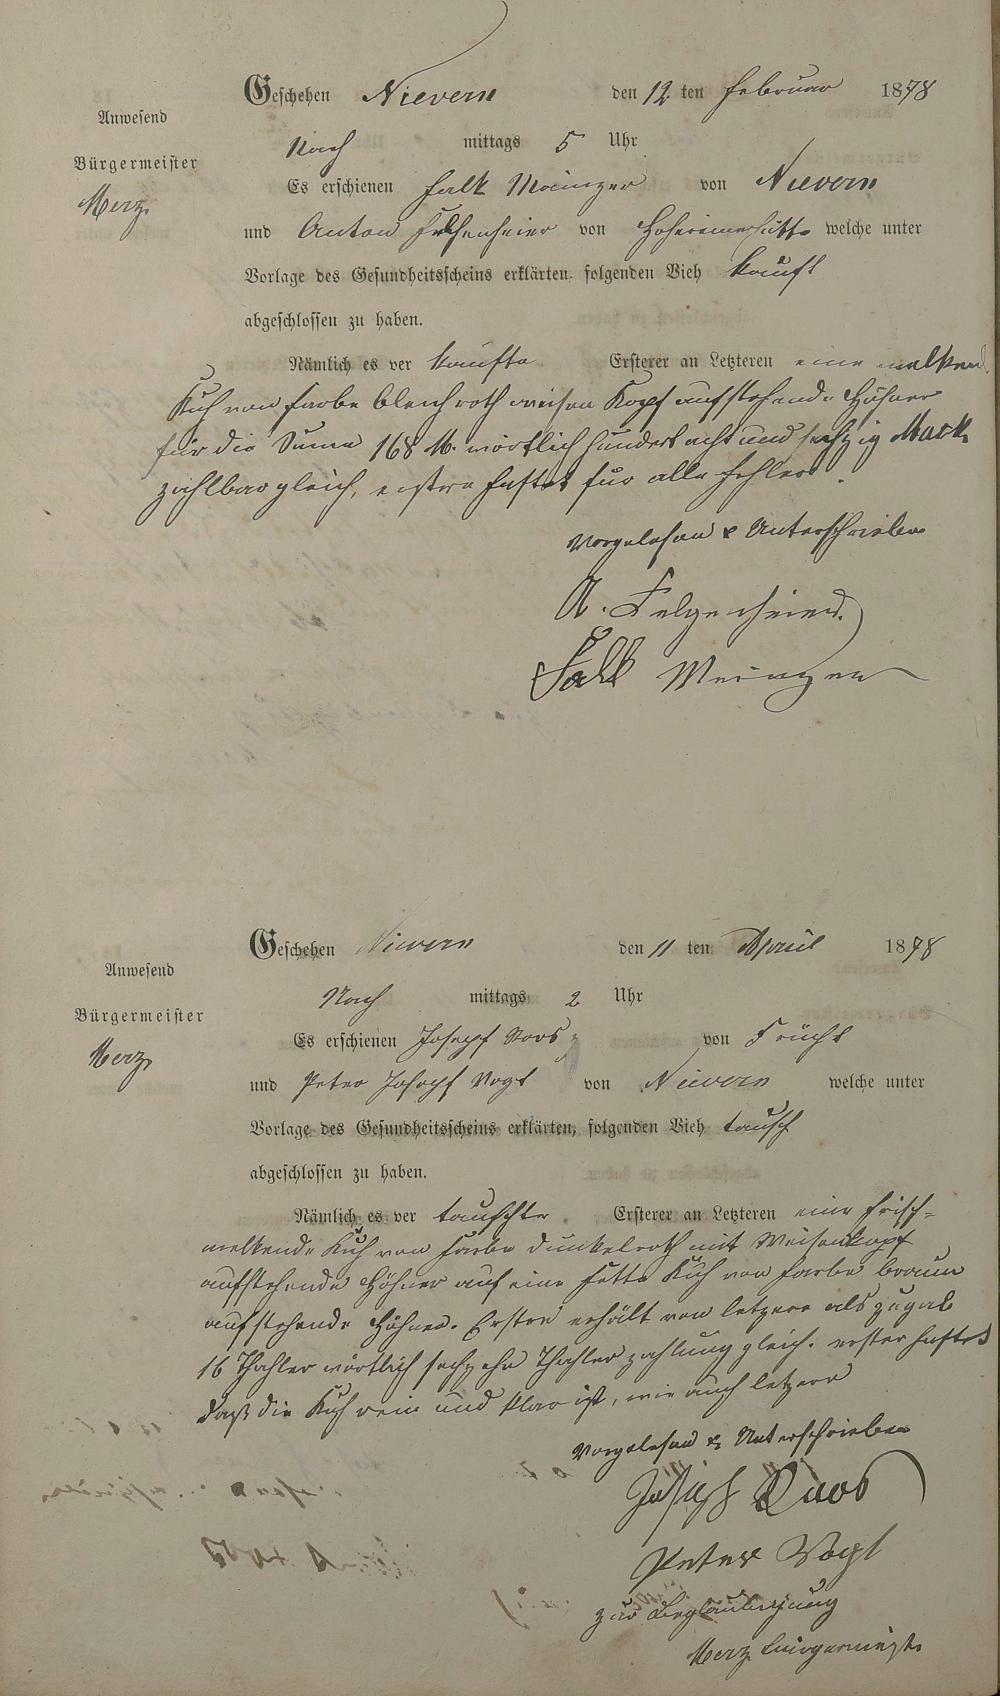 Geschehen Nievern den 12 ten Februar 1878
Anwesend
Nach mittags 5 Uhr
Bürgermeister
Es erschienen Falk Mainzer von Nievern
Merz
und Anton von welche unter
Vorlage des Gesundheitsscheins erklärten, folgenden Vieh kauft
abgeschlossen zu haben.
Nämlich es ver kaufte Ersterer an Letzteren eine melkend.
Kuh von Farbe bleich roth weisen Kopf aufstehende Höhner
für die Suma 168 M. wörtlich hundert acht und sechzig Mark
zahlbar gleich, erstere haftet für alle Fehler.
Vorgelesen & Unterschrieben
A. Felgenheier
Falk Meinzer
Geschehen Nievern den 11 ten April 1878
Anwesend
Nach mittags 2 Uhr
Bürgermeister
Es erschienen Josepf von Frücht
Merz
und Peter Josepf Vogt von Nievern welche unter
Vorlage des Gesundheitsscheins erklärten, folgenden Vieh tausch
abgeschlossen zu haben.
Nämlich es ver tauschte Ersterer an Letzteren eine frisch=
melkende Kuh von Farbe dunkelroth mit Weisenkopf
aufstehende Höhner auf eine fette Kuh von Farbe braun
aufstehende Höhner. Erstre erhält von letzere als zugab
16 Thahler wörtlich sechzehn Thahler zahlung gleich. erster haftet
daß die Kuh rein und klar ist, wie auch letzere
Vorgelesen & Unterschrieben
Joseph
Peter Vogt
zur Beglaubigung
Merz Bürgermeister